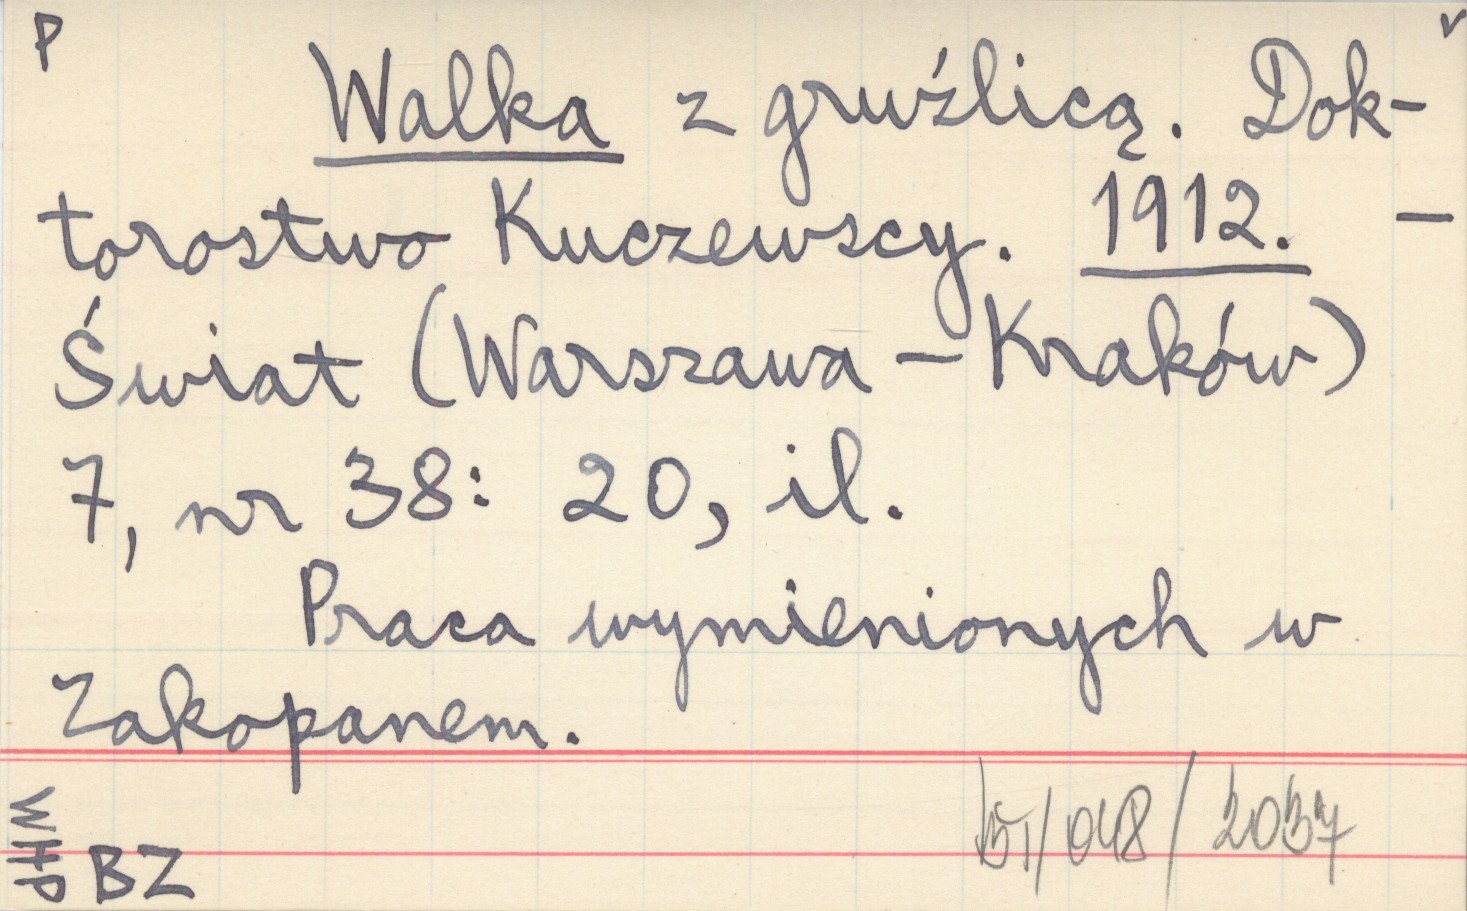 P v
Walka z gruźlicą. Dok-
torostwo Kuczewscy. 1912. –
Świat (Warszawa – Kraków)
7, nr 38: 20, il.
Praca wymienionych w
Zakopanem.
WHP BZ
/048/2037